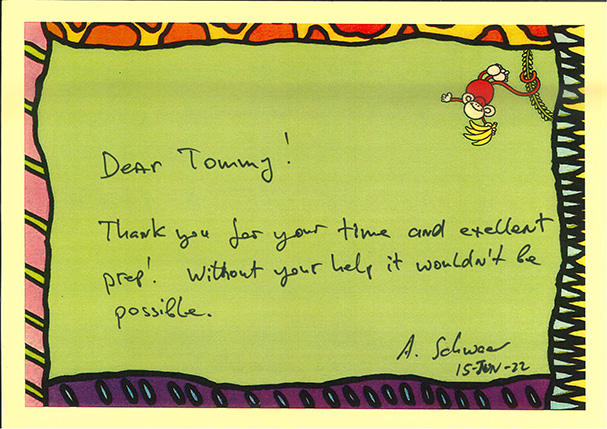 Dear Tommy!
Thank you for your time and exellent
prep! Without your help it wouldn't be
possible.
A. Schwee
15-JUN-22